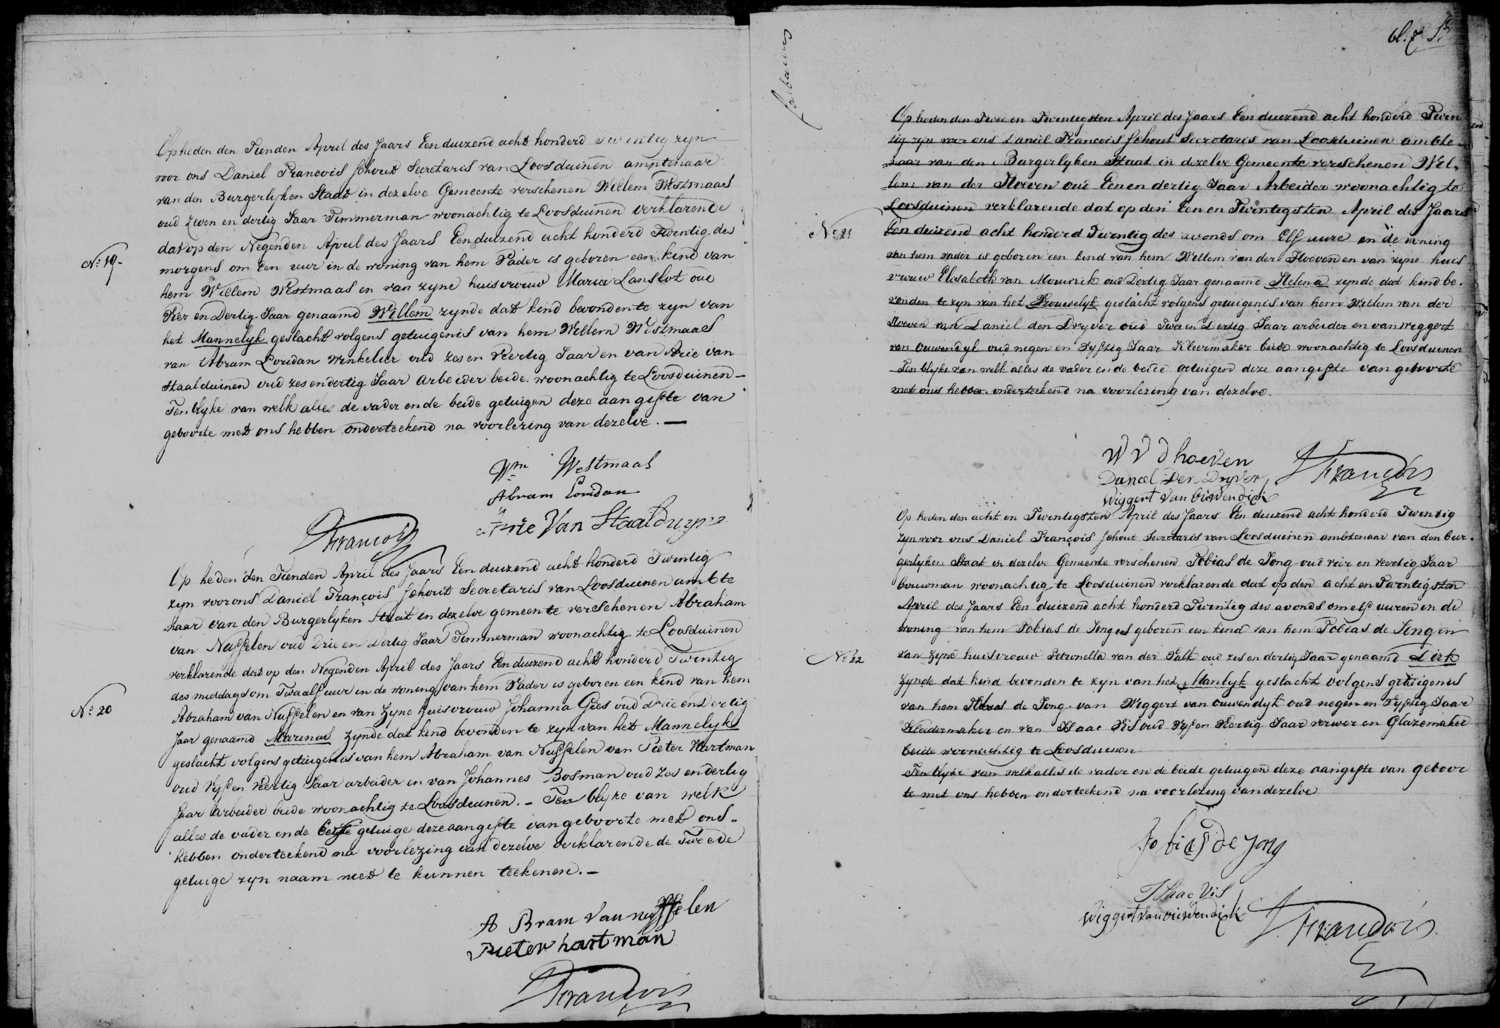 Op heden den Tienden April des Jaars Een duizend acht honderd Twentig zijn
voor ons Daniel Francois Schout Secretaris van Loosduinen amptenaar
van den Burgerlyken Staat in dezelve Gemeente verschenen Willem Westmaas
oud Zeven en dertig Jaar Timmerman woonachtig te Loosduinen verklarende
dat op den Negenden April des Jaars Een duizend acht honderd Twentig des
N: 19.
morgens om Een uur in de woning van hem Vader is geboren een kind van
hem Willem Westmaas en van zyne huisvrouw Maria Lanslot oud
Vier en Dertig Jaar genaamd Willem zynde dat kind bevonden te zyn van
het Mannelyk geslacht volgens getuigenis van hem Willem Westmaas
van Abram Loridan winkelier oud zes en Veertig Jaar en van Arie van
Staalduinen oud zes en dertig Jaar Arbeider beide woonachtig te Loosduinen
Ten blyke van welk alles de vader en de beide getuigen deze aangifte van
geboorte met ons hebben onderteekend na voorlezing van dezelve.
Wm Westmaas
Abram Loridan
Arie Van Staalduyne
Francois
Op heden den Tienden April des Jaars Een duizend acht honderd Twentig
zyn voor ons Daniel François Schout Secretaris van Loosduinen ambte
naar van den Burgerlyken Staat in dezelve gemeente verschenen Abraham
van Nuffelen oud Drie en dertig Jaar Timmerman woonachtig te Loosduinen
verklarende dat op den Negenden April des Jaars Een duizend acht honderd Twentig
des middags om Twaalf uur in de woning van hem Vader is geboren een kind van hem
N: 20
Abraham van Nuffelen en van Zyne huisvrouw Johanna Goes oud drie en dertig
Jaar genaamd Marinus zynde dat kind bevonden te zyn van het Mannelyk
geslacht volgens getuigenis van hem Abraham van Nuffelen van Pieter Hartman
oud Vyf en Veertig Jaar arbeider en van Johannes Bosman oud zes en dertig
Jaar Arbeider beide woonachtig te Loosduinen. Ten blyke van welk
alles de vader en de Eerste getuige deze aangifte van geboorte met ons
hebben onderteekend na voorlezing van dezelve verklarende de Tweede
getuige zyn naam niet te kunnen teekenen.
A Bram van nuffelen
Pieter hartman
Francois
bl. 7
Op heden den Twee en Twentigsten April des Jaars Een duizend acht honderd Twen
tig zyn voor ons Daniel Francois Schout Secretaris van Loosduinen ambte
naar van den Burgerlyken Staat in dezelve Gemeente verschenen Wil
lem van der Hoeven oud Een en dertig Jaar Arbeider woonachtig te
Loosduinen verklarende dat op den Een en Twintigsten April des Jaars
N: 21
Een duizend acht honderd Twentig des avonds om Elf uure in de woning
van hem vader is geboren een kind van hem Willem van der Hoeven en van zyne huis
vrouw Elisabeth van Mourik oud Dertig Jaar genaamd Helena zynde dat kind be
vonden te zyn van het Vrouwelyk geslacht volgens getuigenis van hem Willem van der
Hoeven van Daniel den Dryver oud Twee en Dertig Jaar arbeider en van Wiggert
van Ouwendyk oud negen en Vyftig Jaar Kleermaker beide woonachtig te Loosduinen
Ten blyke van welk alles de vader en de beide getuigen deze aangifte van geboorte
met ons hebben onderteekend na voorlezing van dezelve.
W V D hoeven
Daniel Den Dryver
Wiggert van ouwendick
Francois
Op heden den acht en Twentigsten April des Jaars Een duizend acht honderd Twentig
zyn voor ons Daniel François Schout Secretaris van Loosduinen ambtenaar van den Bur
gerlyken Staat in dezelve Gemeente verschenen Tobias de Jong oud vier en Veertig Jaar
bouwman woonachtig te Loosduinen verklarende dat op den acht en Twentigsten
April des Jaars Een duizend acht honderd Twentig des avonds om elf uuren in de
woning van hem Tobias de Jong is geboren een kind van hem Tobias de Jong en
N: 22
van zyne huisvrouw Petronella van der Valk oud zes en dertig Jaar genaamd Dirk
zynde dat kind bevonden te zyn van het Manlyk geslacht volgens getuigenis
van hem Tobias de Jong van Wiggert van Ouwendyk oud negen en Vyftig Jaar
Kleedermaker en van Isaac Vis oud Vyf en Veertig Jaar verwer en Glazemaker
beide woonachtig te Loosduinen
Ten blyke van welk alles de vader en de beide getuigen deze aangifte van geboor
te met ons hebben onderteekend na voorlezing van dezelve
Tobias De Jong
Isaac Vis
Wiggert van ouwendick
Francois